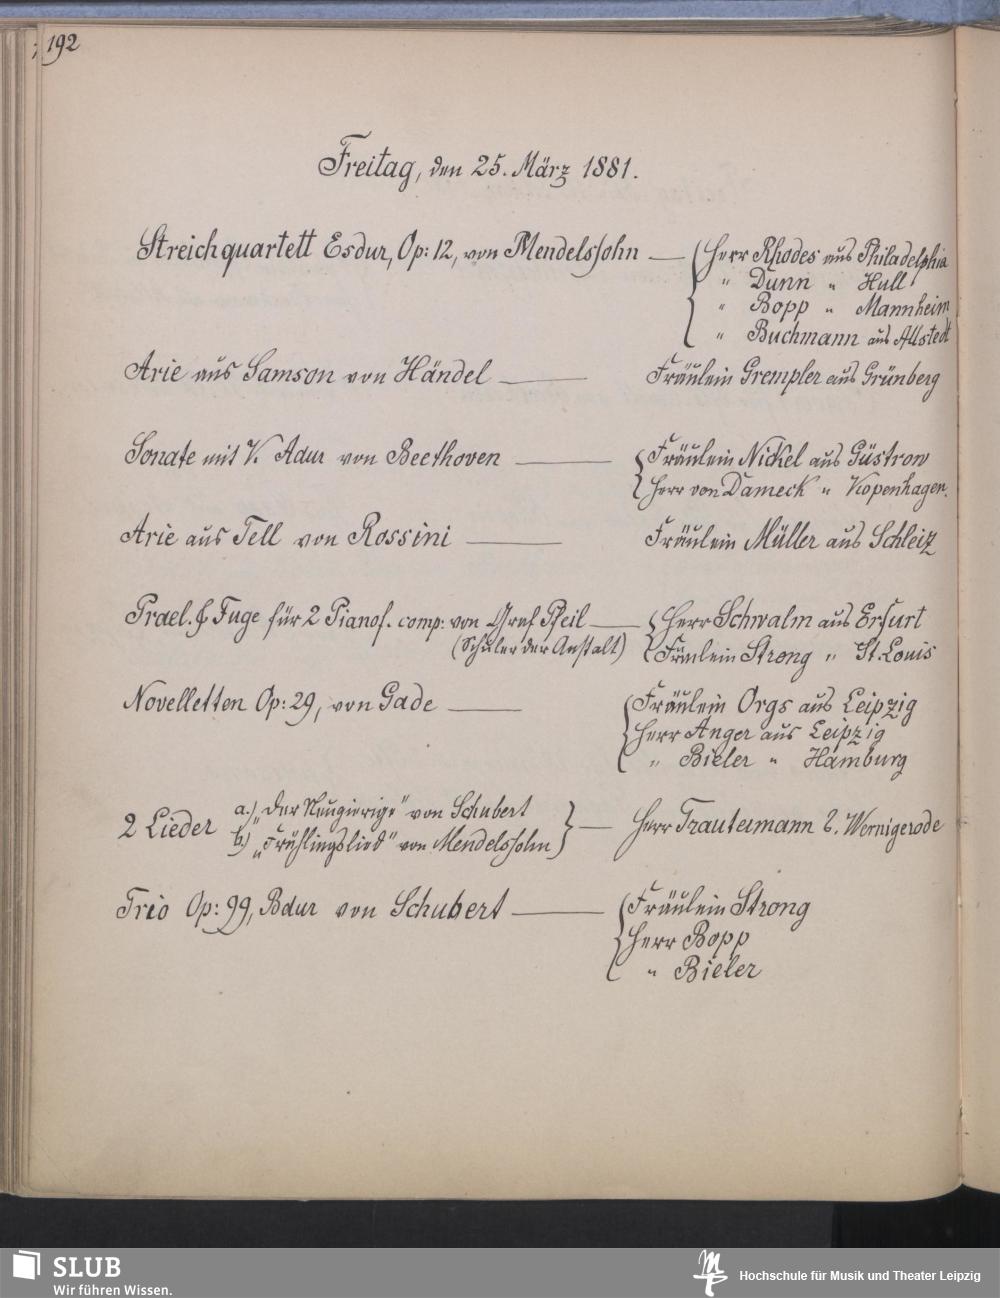 192
Freitag, den 25. März 1881.
Streichquartett Esdur, Op: 12, von Mendelssohn — Herr Rhodes aus Philadelphia
" Dunn " Hull
" Bopp " Mannheim
" Buchmann aus Allstedt
Arie aus Samson von Händel — Fräulein Grempler aus Grünberg
Sonate mit V. Adur von Beethoven — Fräulein Nickel aus Güstrow
Herr von Dameck " Kopenhagen.
Arie aus Tell von Rossini — Fräulein Müller aus Schleiz
Prael. & Fuge für 2 Pianof. comp: von Graf Pfeil — Herr Schwalm aus Erfurt
(Schüler der Anstalt) Fräulein Strong " St. Louis
Novelletten Op: 29, von Gade — Fräulein Orgs aus Leipzig
Herr Anger aus Leipzig
" Bieler " Hamburg
2 Lieder a.) „Der Neugierige" von Schubert
b.) „Frühlingslied" von Mendelssohn — Herr Trautermann Wernigerode
Trio Op: 99, Bdur von Schubert — Fräulein Strong
Herr Bopp
" Bieler
SLUB
Wir führen Wissen.
Hochschule für Musik und Theater Leipzig